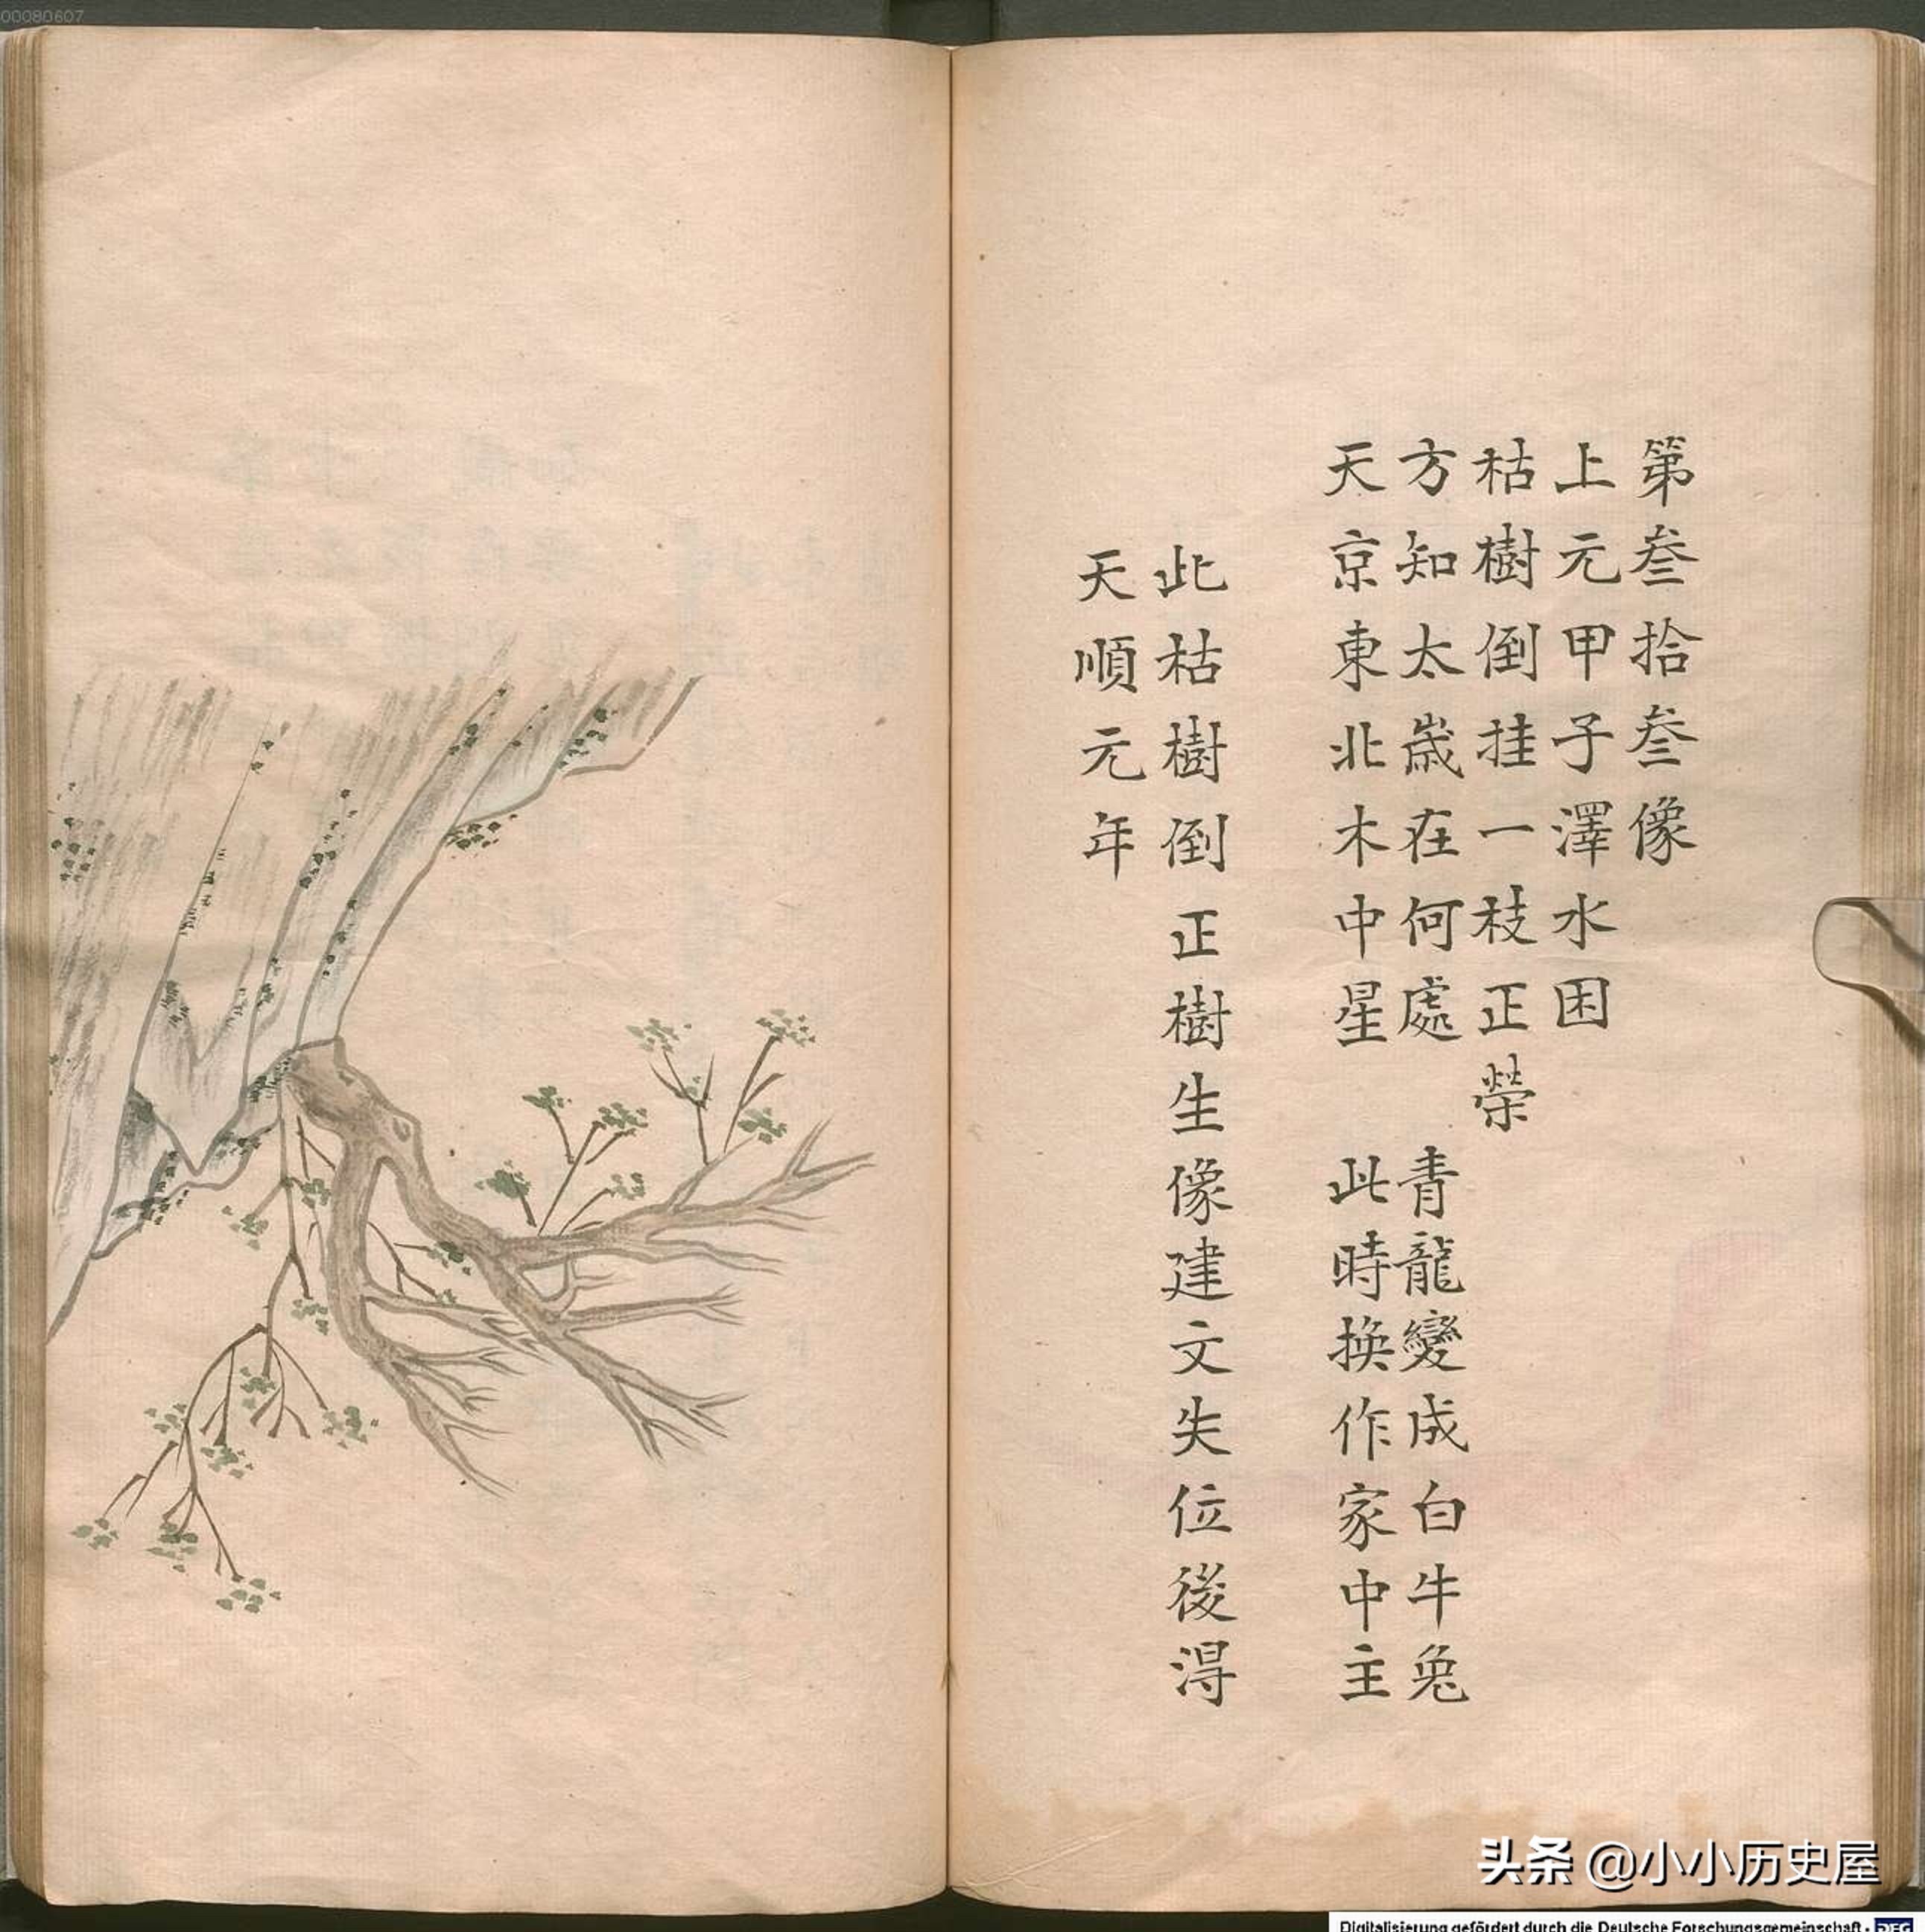 00080607
第叁拾叁像
上元甲子澤水困
枯樹倒挂一枝正榮
方知太嵗在何處 青龍變成白牛兔
天京東北木中星 此時換作家中主
此枯樹倒正樹生像建文失位後淂
天順元年
头条 @小小历史屋
Digitalisierung gefördert durch die Deutsche Forschungsgemeinschaft - DFG